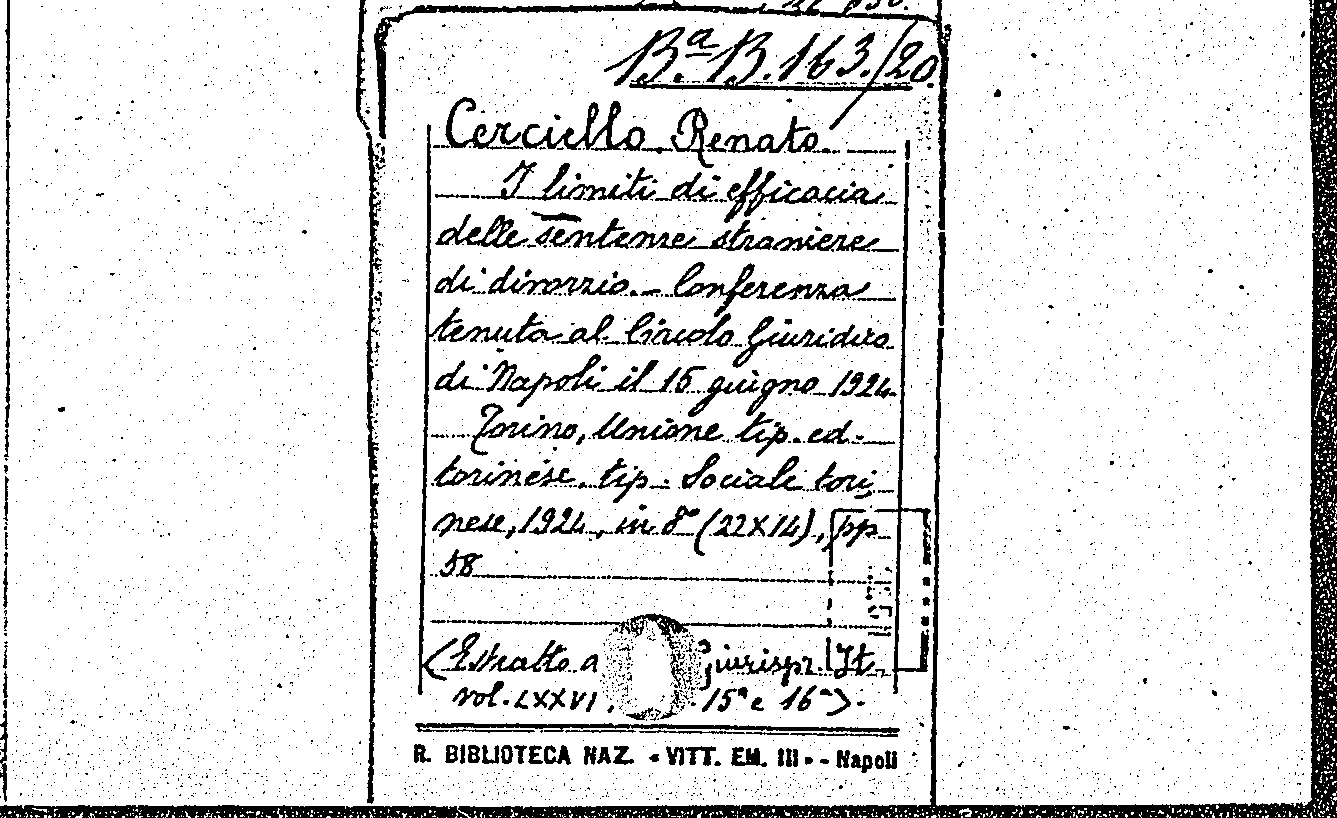 Bª B. 163./20.
Cerciello Renato.
I limiti di efficacia
delle sentenze straniere
di divorzio. - Conferenza
tenuta al Circolo Giuridico
di Napoli il 15 giugno 1924
Torino, Unione tip. ed.
torinese. tip. Sociale tori
nese, 1924, in 8º (22x14), pp
58
(Estratto a Giurispr. It.
vol. LXXVI. . 15ª e 16ª).
R. BIBLIOTECA NAZ. « VITT. EM. III » - Napoli